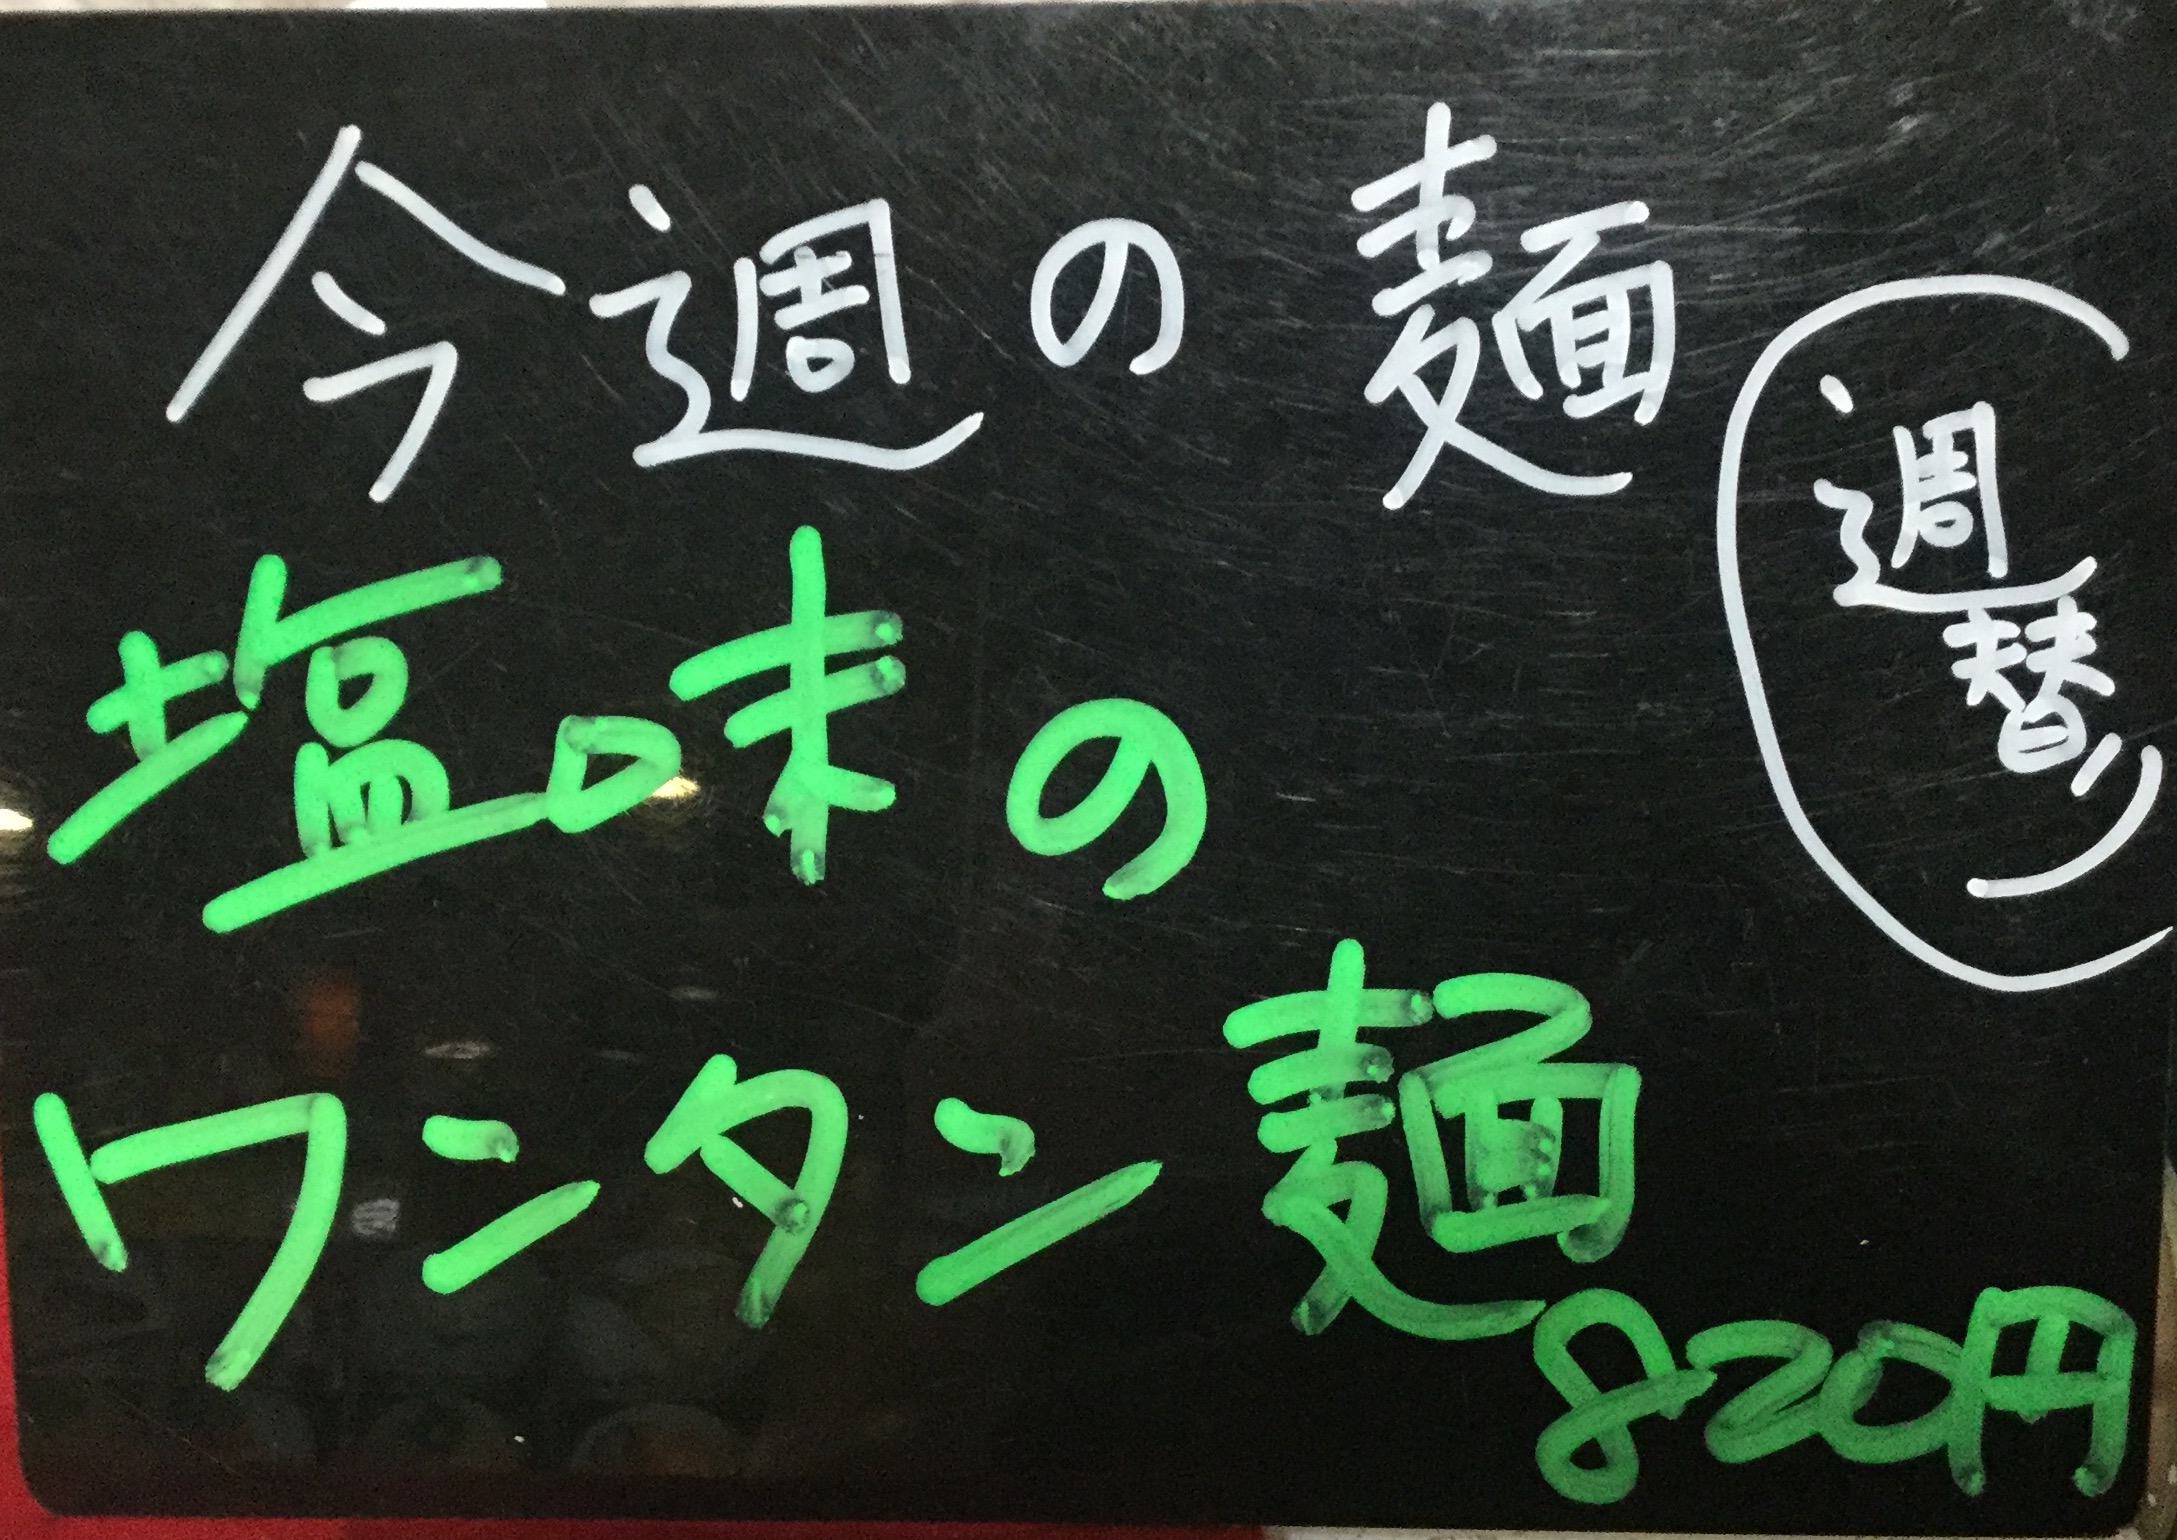 今週の麺
週替り
塩味の
ワンタン麺
820円